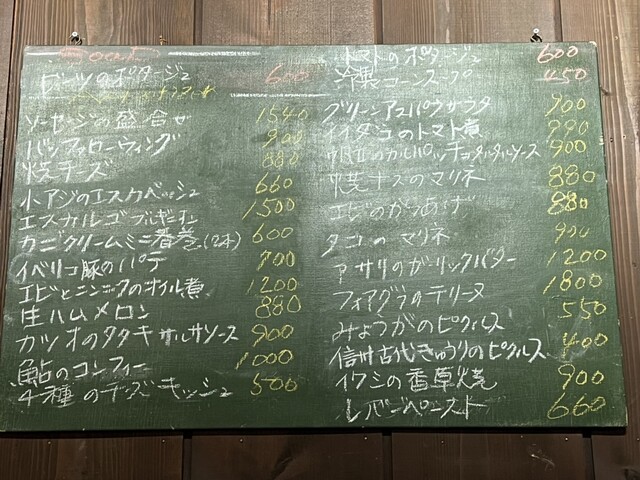 ビーツのポタージュ 600
ソーセージの盛合せ 1540
バッファローウィング 900
焼チーズ 880
小アジのエスカベッシュ 660
エスカルゴブルギニヨン 1500
カニクリームミニ春巻(2本) 600
イベリコ豚のパテ 700
エビとニンニクのオイル煮 1200
生ハムメロン 880
カツオのタタキサルサソース 900
鮎のコンフィー 1000
4種のチーズキッシュ 500
トマトのポタージュ 600
冷製コーンスープ 450
グリーンアスパラサラダ 700
イイダコのトマト煮 990
カルパッチョタルタルソース 900
焼ナスのマリネ 880
エビのからあげ 880
タコのマリネ 900
アサリのガーリックバター 1200
フォアグラのテリーヌ 1800
みょうがのピクルス 550
信州古代きゅうりのピクルス 400
イワシの香草焼 900
レバーペースト 660